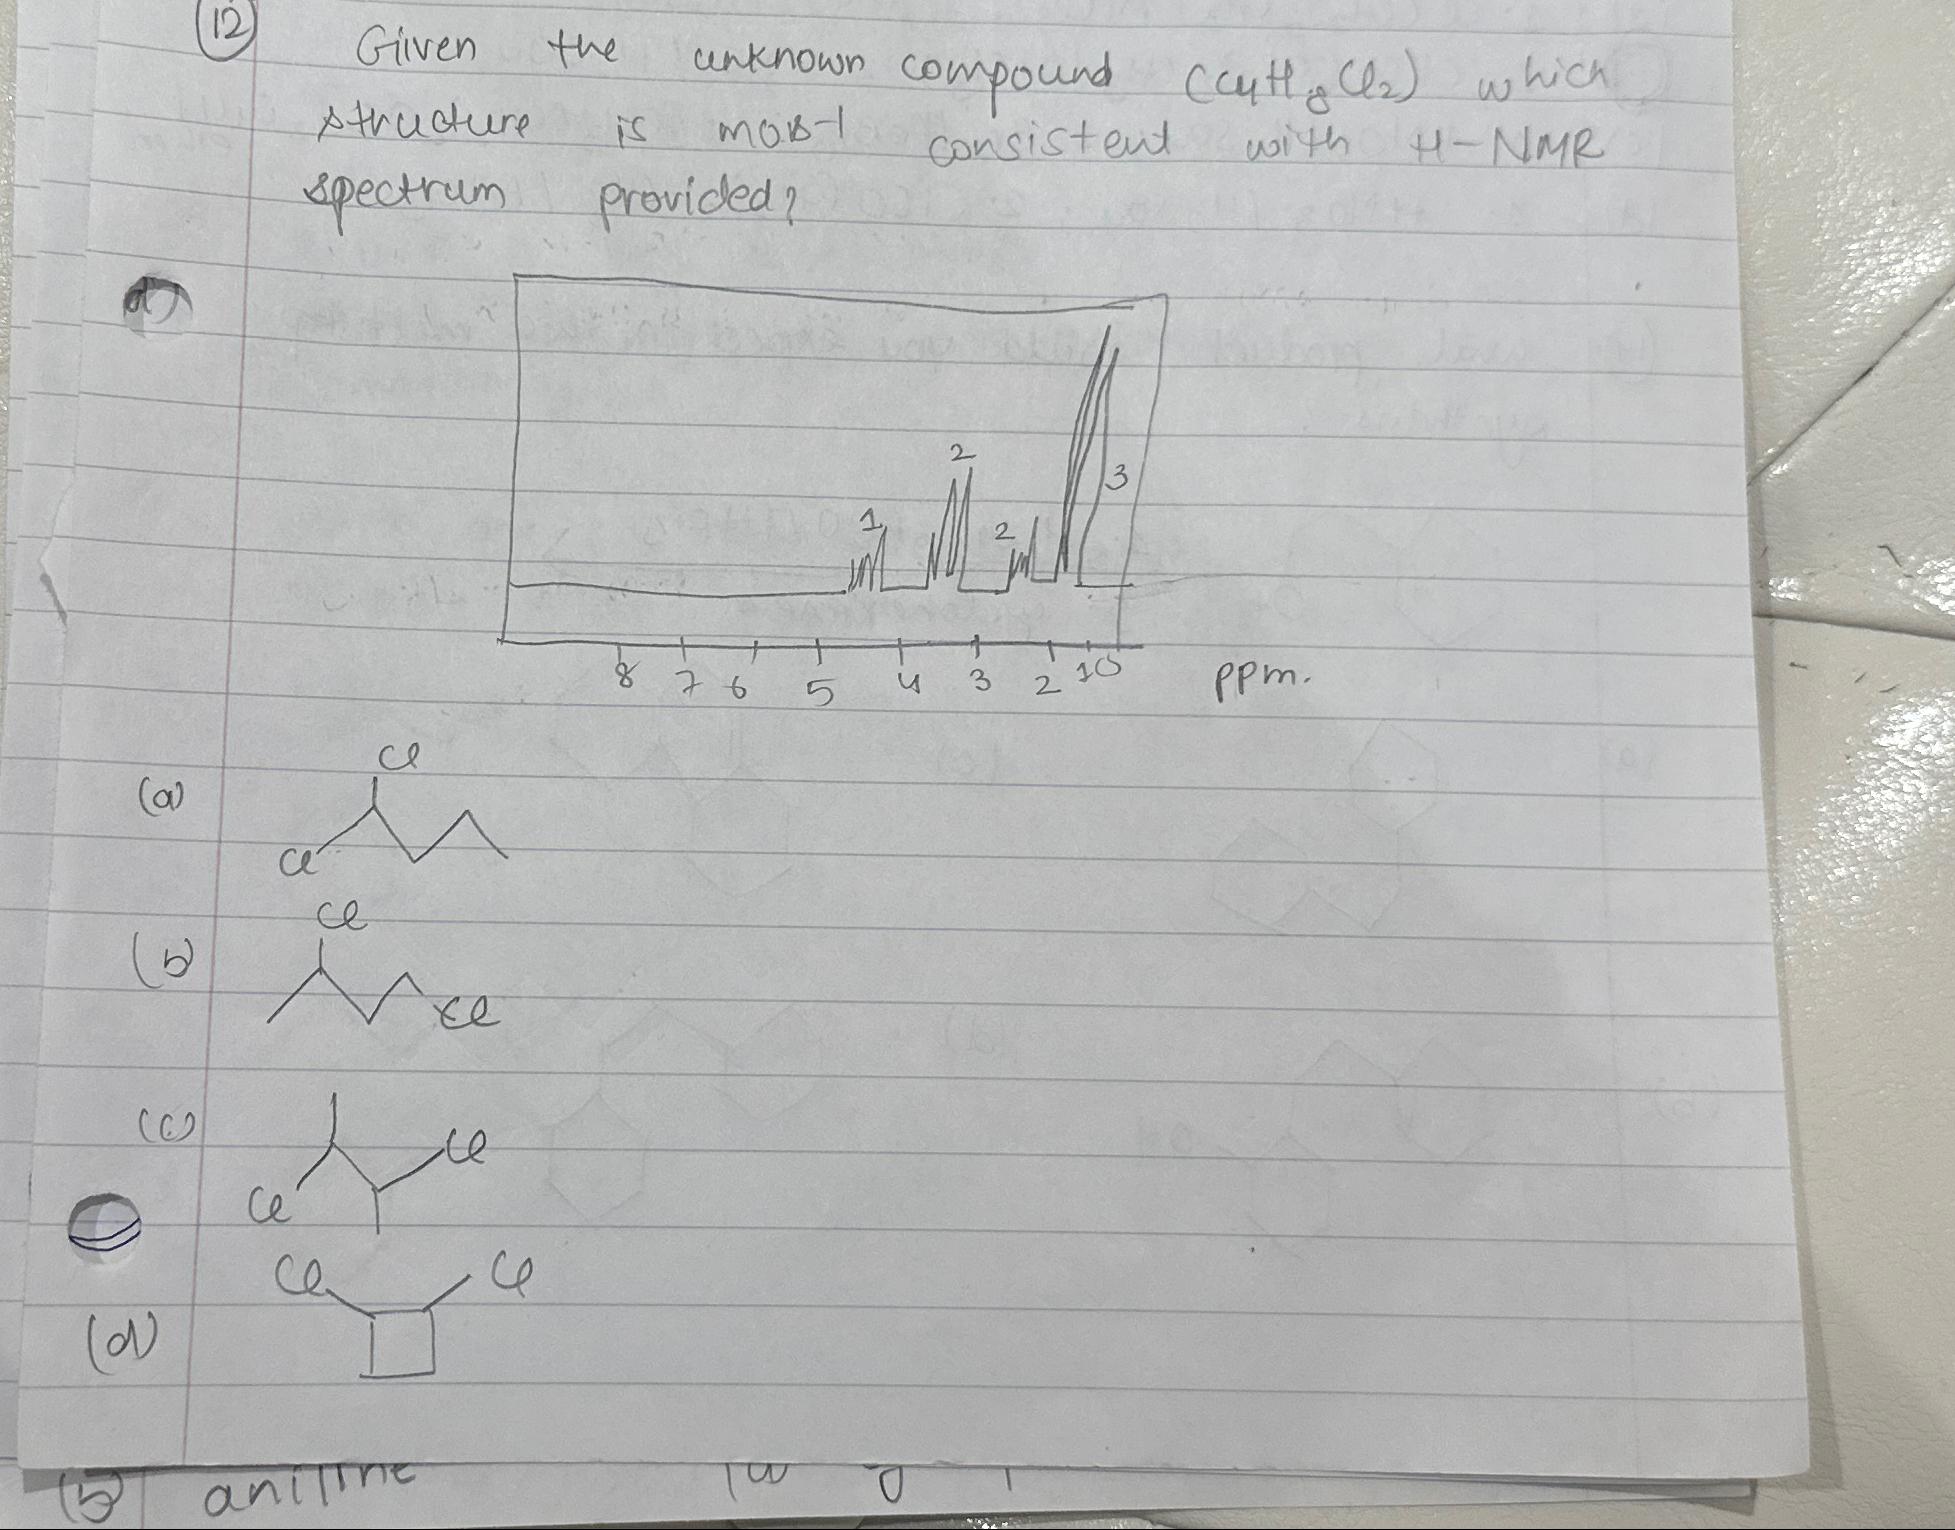 12
Given the unknown compound (C4H8Cl2) which
structure is most consistent with H-NMR
spectrum provided?
1
2
2
3
8 7 6 5 4 3 2 1 0 ppm.
(a)
Cl
Cl
(b)
Cl
Cl
(c)
Cl
Cl
(d)
Cl Cl
(b) aniline